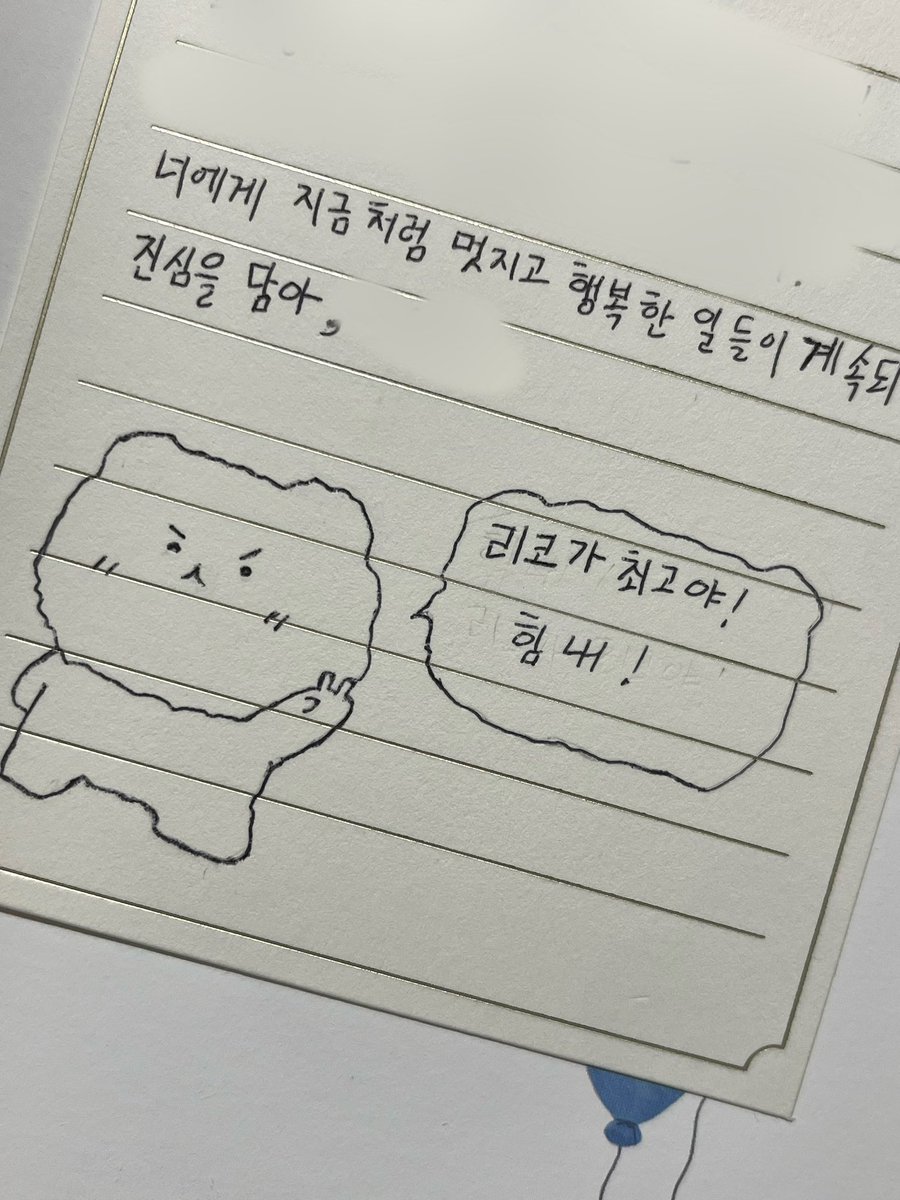 너에게 지금처럼 멋지고 행복한 일들이 계속되
진심을 담아,
리코가 최고야!
힘내!